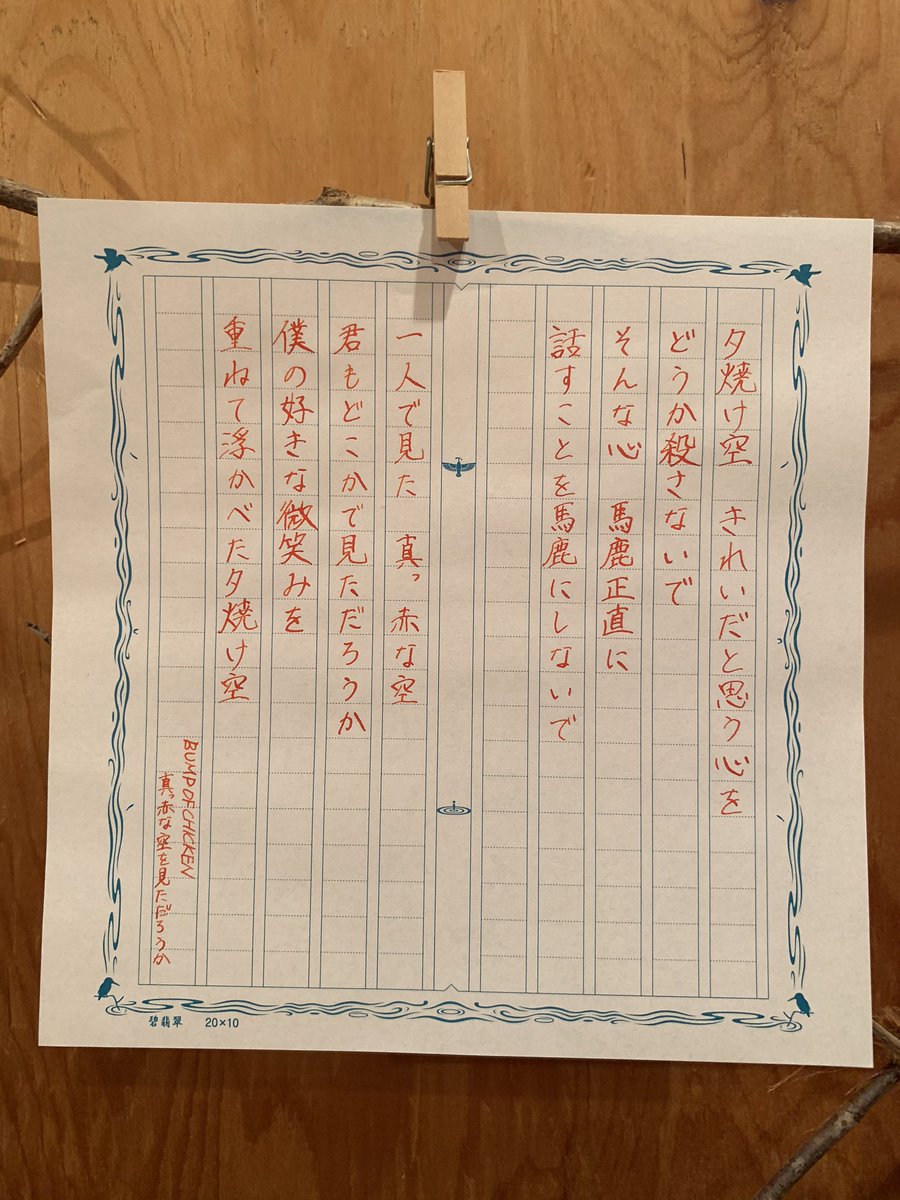 夕焼け空　きれいだと思う心を
どうか殺さないで
そんな心　馬鹿正直に
話すことを馬鹿にしないで
一人で見た　真っ赤な空
君もどこかで見ただろうか
僕の好きな微笑みを
重ねて浮かべた夕焼け空
BUMP OF CHICKEN
真っ赤な空を見ただろうか
碧翡翠　20×10